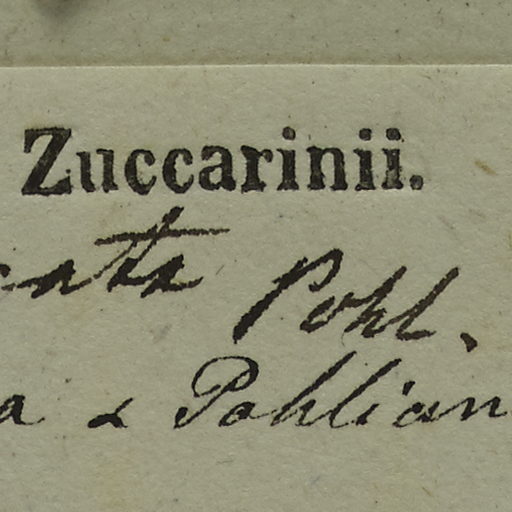 Zuccarinii.
cata Pohl.
a & Pohlian